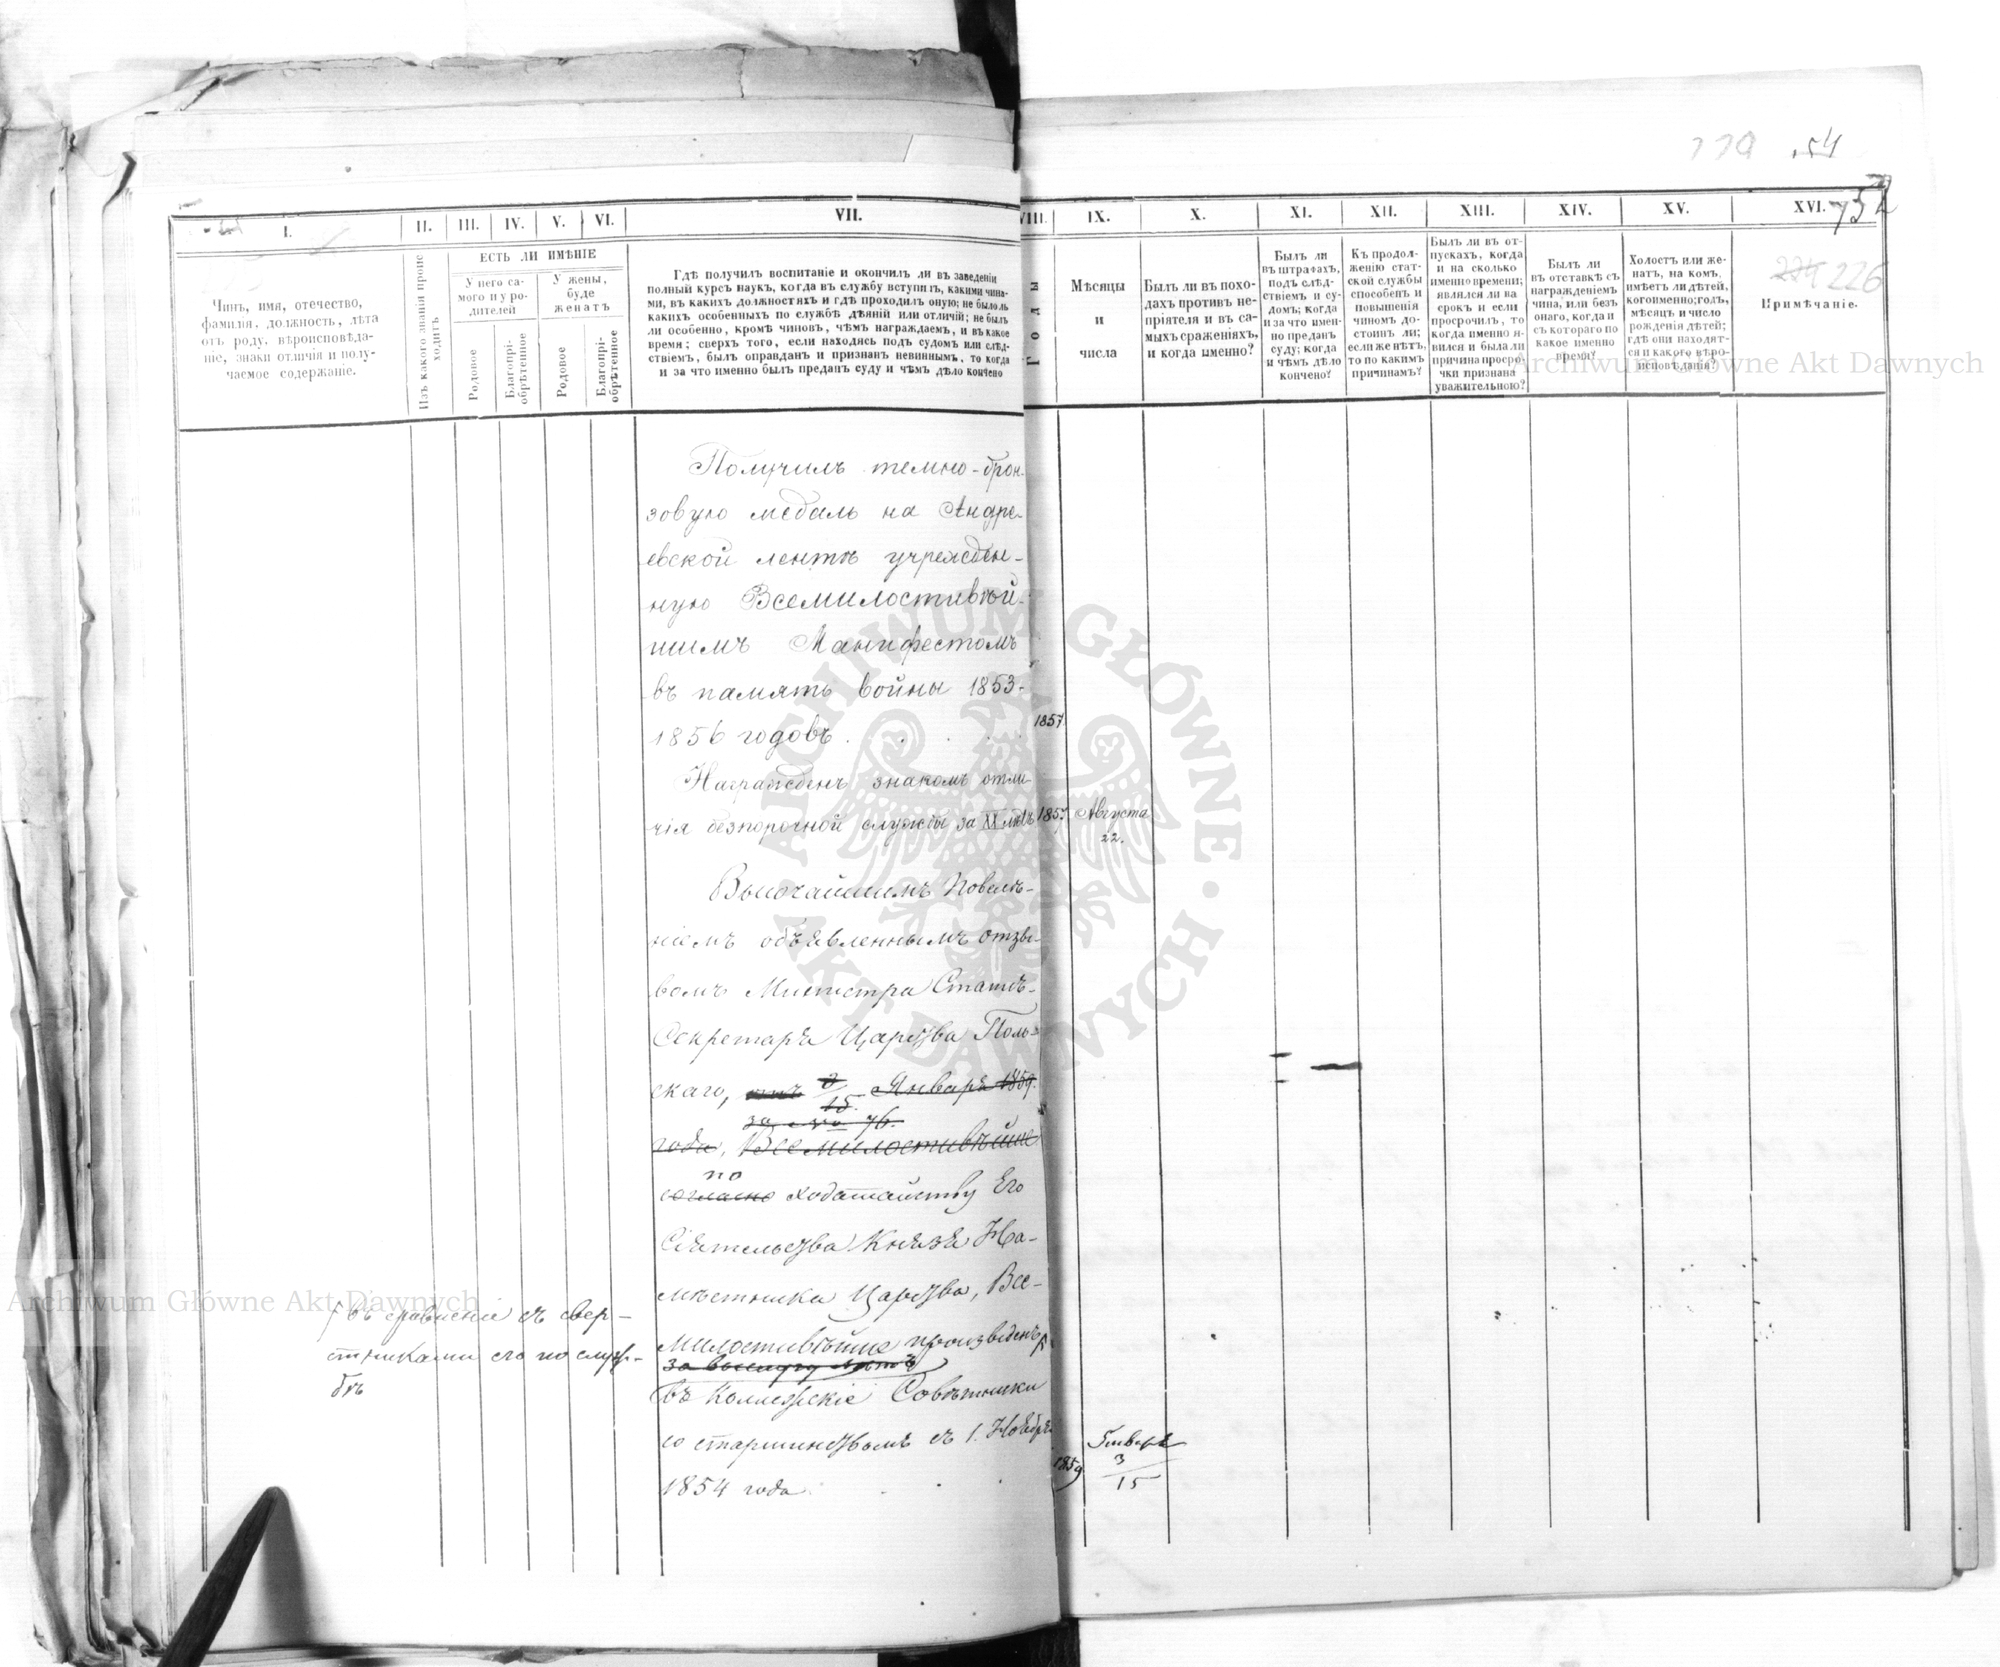 119 .54
752
I. II. III. IV. V. VI. VII. VIII. IX. X. XI. XII. XIII. XIV. XV. XVI.
Чинъ, имя, отечество,
фамилія, должность, лѣта
отъ роду, вѣроисповѣда-
ніе, знаки отличія и полу-
чаемое содержаніе.
Изъ какого званія проис
ходитъ
ЕСТЬ ЛИ ИМѢНІЕ
У него са-
мого и у ро-
дителей
У жены,
буде
женатъ
Родовое
Благопрі-
обрѣтенное
Родовое
Благопрі-
обрѣтенное
Гдѣ получилъ воспитаніе и окончилъ ли въ заведеніи
полный курсъ наукъ, когда въ службу вступилъ, какими чина-
ми, въ какихъ должностяхъ и гдѣ проходилъ оную; не было ль
какихъ особенныхъ по службѣ дѣяній или отличій; не былъ
ли особенно, кромѣ чиновъ, чѣмъ награждаемъ, и въ какое
время; сверхъ того, если находясь подъ судомъ или слѣд-
ствіемъ, былъ оправданъ и признанъ невиннымъ, то когда
и за что именно былъ преданъ суду и чѣмъ дѣло кончено
Годы
Мѣсяцы
и
числа
Былъ ли въ похо-
дахъ противъ не-
пріятеля и въ са-
мыхъ сраженіяхъ,
и когда именно?
Былъ ли
въ штрафахъ,
подъ слѣд-
ствіемъ и су-
домъ; когда
и за что имен-
но преданъ
суду; когда
и чѣмъ дѣло
кончено?
Къ продол-
женію стат-
ской службы
способенъ и
повышенія
чиномъ до-
стоинъ ли;
если же нѣтъ,
то по какимъ
причинамъ?
Былъ ли въ от-
пускахъ, когда
и на сколько
именно времени;
явился ли на
срокъ и если
просрочилъ, то
когда именно я-
вился и была ли
причина просро-
чки признана
уважительною?
Былъ ли
въ отставкѣ съ
награжденіемъ
чина, или безъ
онаго, когда и
съ котораго по
какое именно
время?
Холостъ или же-
натъ, на комъ,
имѣетъ ли дѣтей,
кого именно; годъ,
мѣсяцъ и число
рожденія дѣтей;
гдѣ они находят-
ся и какого вѣро-
исповѣданія?
224 226
Примѣчаніе.
Archiwum Główne Akt Dawnych
Получилъ темно-брон-
зовую медаль на Андре-
евской лентѣ учрежден-
ную Всемилостивѣй-
шимъ Манифестомъ
въ память войны 1853-
1856 годовъ . . . . 1857
Награжденъ знакомъ отли-
чія безпорочной службы за XX лѣтъ 1857 Августа
22.
Высочайшимъ Повелѣ-
ніемъ объявленнымъ отзы-
вомъ Министра Статсъ-
Секретаря Царства Поль-
скаго, отъ 3/15 Января 1859.
за № 76.
года, Всемилостивѣйше
по
согласно ходатайству Его
Сіятельства Князя На-
мѣстника Царства, Все-
милостивѣйше произведенъ
за выслугу лѣтъ
въ Коллежскіе Совѣтники
со старшинствомъ съ 1. Ноября
1854 года . . . 1859 Января
3
15
въ сравненіе съ свер-
стниками его по служ-
бѣ
Archiwum Główne Akt Dawnych
ARCHIWUM GŁÓWNE · AKT DAWNYCH ·